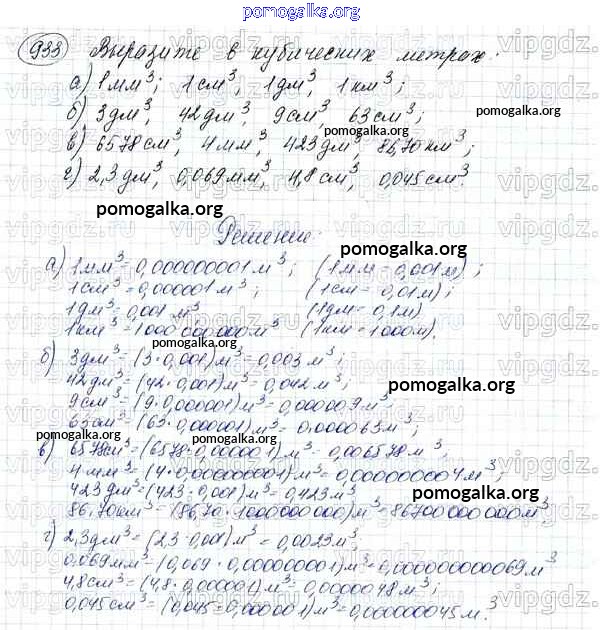 pomogalka.org
933 Выразите в кубических метрах:
а) 1 мм³; 1 см³; 1 дм³, 1 км³;
б) 3 дм³, 42 дм³, 9 см³, 63 см³;
pomogalka.org
pomogalka.org
в) 6578 см³, 4 мм³, 423 дм³, 86,70 км³;
pomogalka.org
г) 2,3 дм³, 0,069 мм³, 4,8 см³, 0,045 см³.
pomogalka.org
Решение:
pomogalka.org
а) 1 мм³ = 0,000000001 м³; (1 мм = 0,001 м);
1 см³ = 0,000001 м³ (1 см = 0,01 м);
1 дм³ = 0,001 м³ (1 дм = 0,1 м)
1 км³ = 1000 000 000 м³ (1 км = 1000 м).
pomogalka.org
б) 3 дм³ = (3 · 0,001) м³ = 0,003 м³;
42 дм³ = (42 · 0,001) м³ = 0,042 м³;
pomogalka.org
9 см³ = (9 · 0,000001) м³ = 0,000009 м³
63 см³ = (63 · 0,000001) м³ = 0,000063 м³;
pomogalka.org
pomogalka.org
в) 6578 см³ = (6578 · 0,000001) м³ = 0,006578 м³;
4 мм³ = (4 · 0,000000001) м³ = 0,000000004 м³;
423 дм³ = (423 · 0,001) м³ = 0,423 м³
pomogalka.org
86,70 км³ = (86,70 · 1000000000) м³ = 86700 000 000 м³.
г) 2,3 дм³ = (2,3 · 0,001) м³ = 0,0023 м³;
0,069 мм³ = (0,069 · 0,000000001) м³ = 0,000000000069 м³
4,8 см³ = (4,8 · 0,000001) м³ = 0,0000048 м³;
0,045 см³ = (0,045 · 0,000001) м³ = 0,000000045 м³.